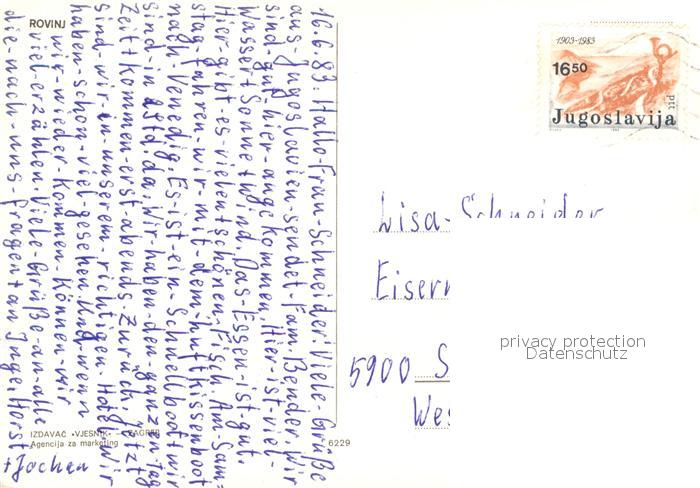 ROVINJ
16.6.83. Hallo-Frau-Schneider! Viele-Grüße
aus Jugoslavien-sendet-Fam. Bender. Wir
sind-gut-hier-angekommen. Hier-ist-viel-
Wasser+Sonne+Wind. Das-Essen-ist-gut.
Hier-gibt-es-vielen+schönen-Fisch. Am-Sam-
stag-fahren-wir-mit-dem-Luftkissenboot
nach-Venedig. Es-ist-ein-Schnellboot+wir
sind-in 4 std. da. Wir-haben-den-ganzen-tag
Zeit+kommen-erst-abends-Zurück. jetzt
sind-wir-in-unserem-richtigen-Hotel. Wir
haben-schon-viel-gesehen. Und-wenn
wir-wieder-kommen-Können-wir
viel-erzählen. Viele-Grüße-an-alle
die-nach-uns-fragen+an Inge. Horst
+Jochen
IZDAVAČ »VJESNIK« ZAGREB
Agencija za marketing
6229
1903-1983
16 50
ptt
Jugoslavija
Lisa-Schneider
Eisern
5900 S
Wes
privacy protection
Datenschutz